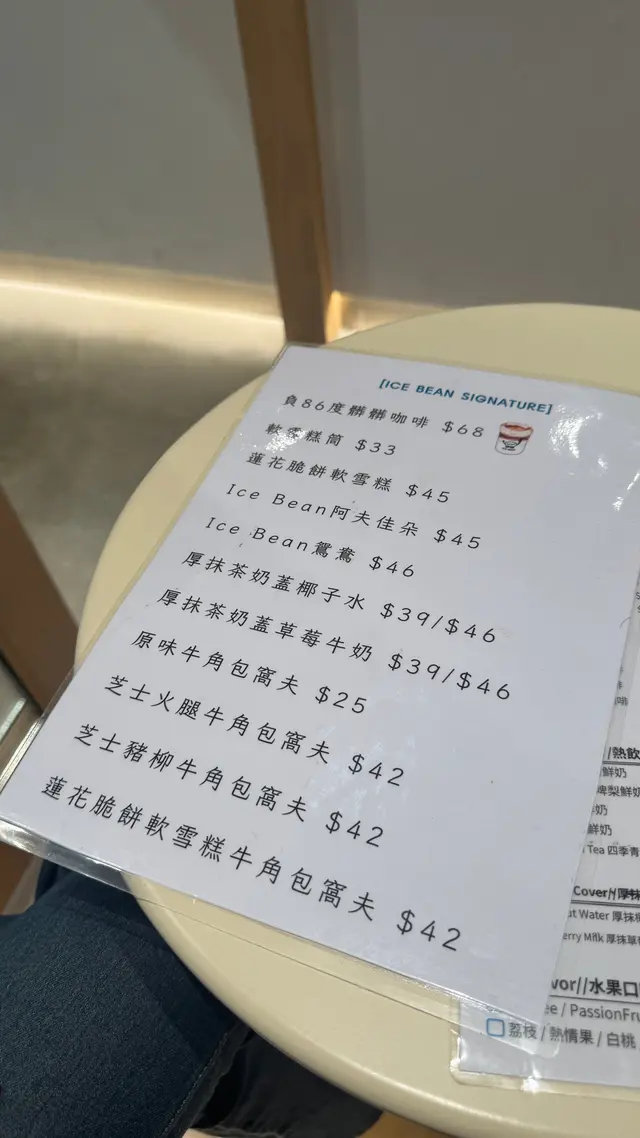 [ICE BEAN SIGNATURE]
負86度髒髒咖啡 $68
軟雪糕筒 $33
蓮花脆餅軟雪糕 $45
Ice Bean阿夫佳朵 $45
Ice Bean鴛鴦 $46
厚抹茶奶蓋椰子水 $39/$46
厚抹茶奶蓋草莓牛奶 $39/$46
原味牛角包窩夫 $25
芝士火腿牛角包窩夫 $42
芝士豬柳牛角包窩夫 $42
蓮花脆餅軟雪糕牛角包窩夫 $42
/熱飲
鮮奶
鮮奶
奶
鮮奶
Tea 四季青
Cover//厚抹
Water 厚抹
Milk 厚抹草
//水果口
/ PassionFru
荔枝 / 熱情果 / 白桃